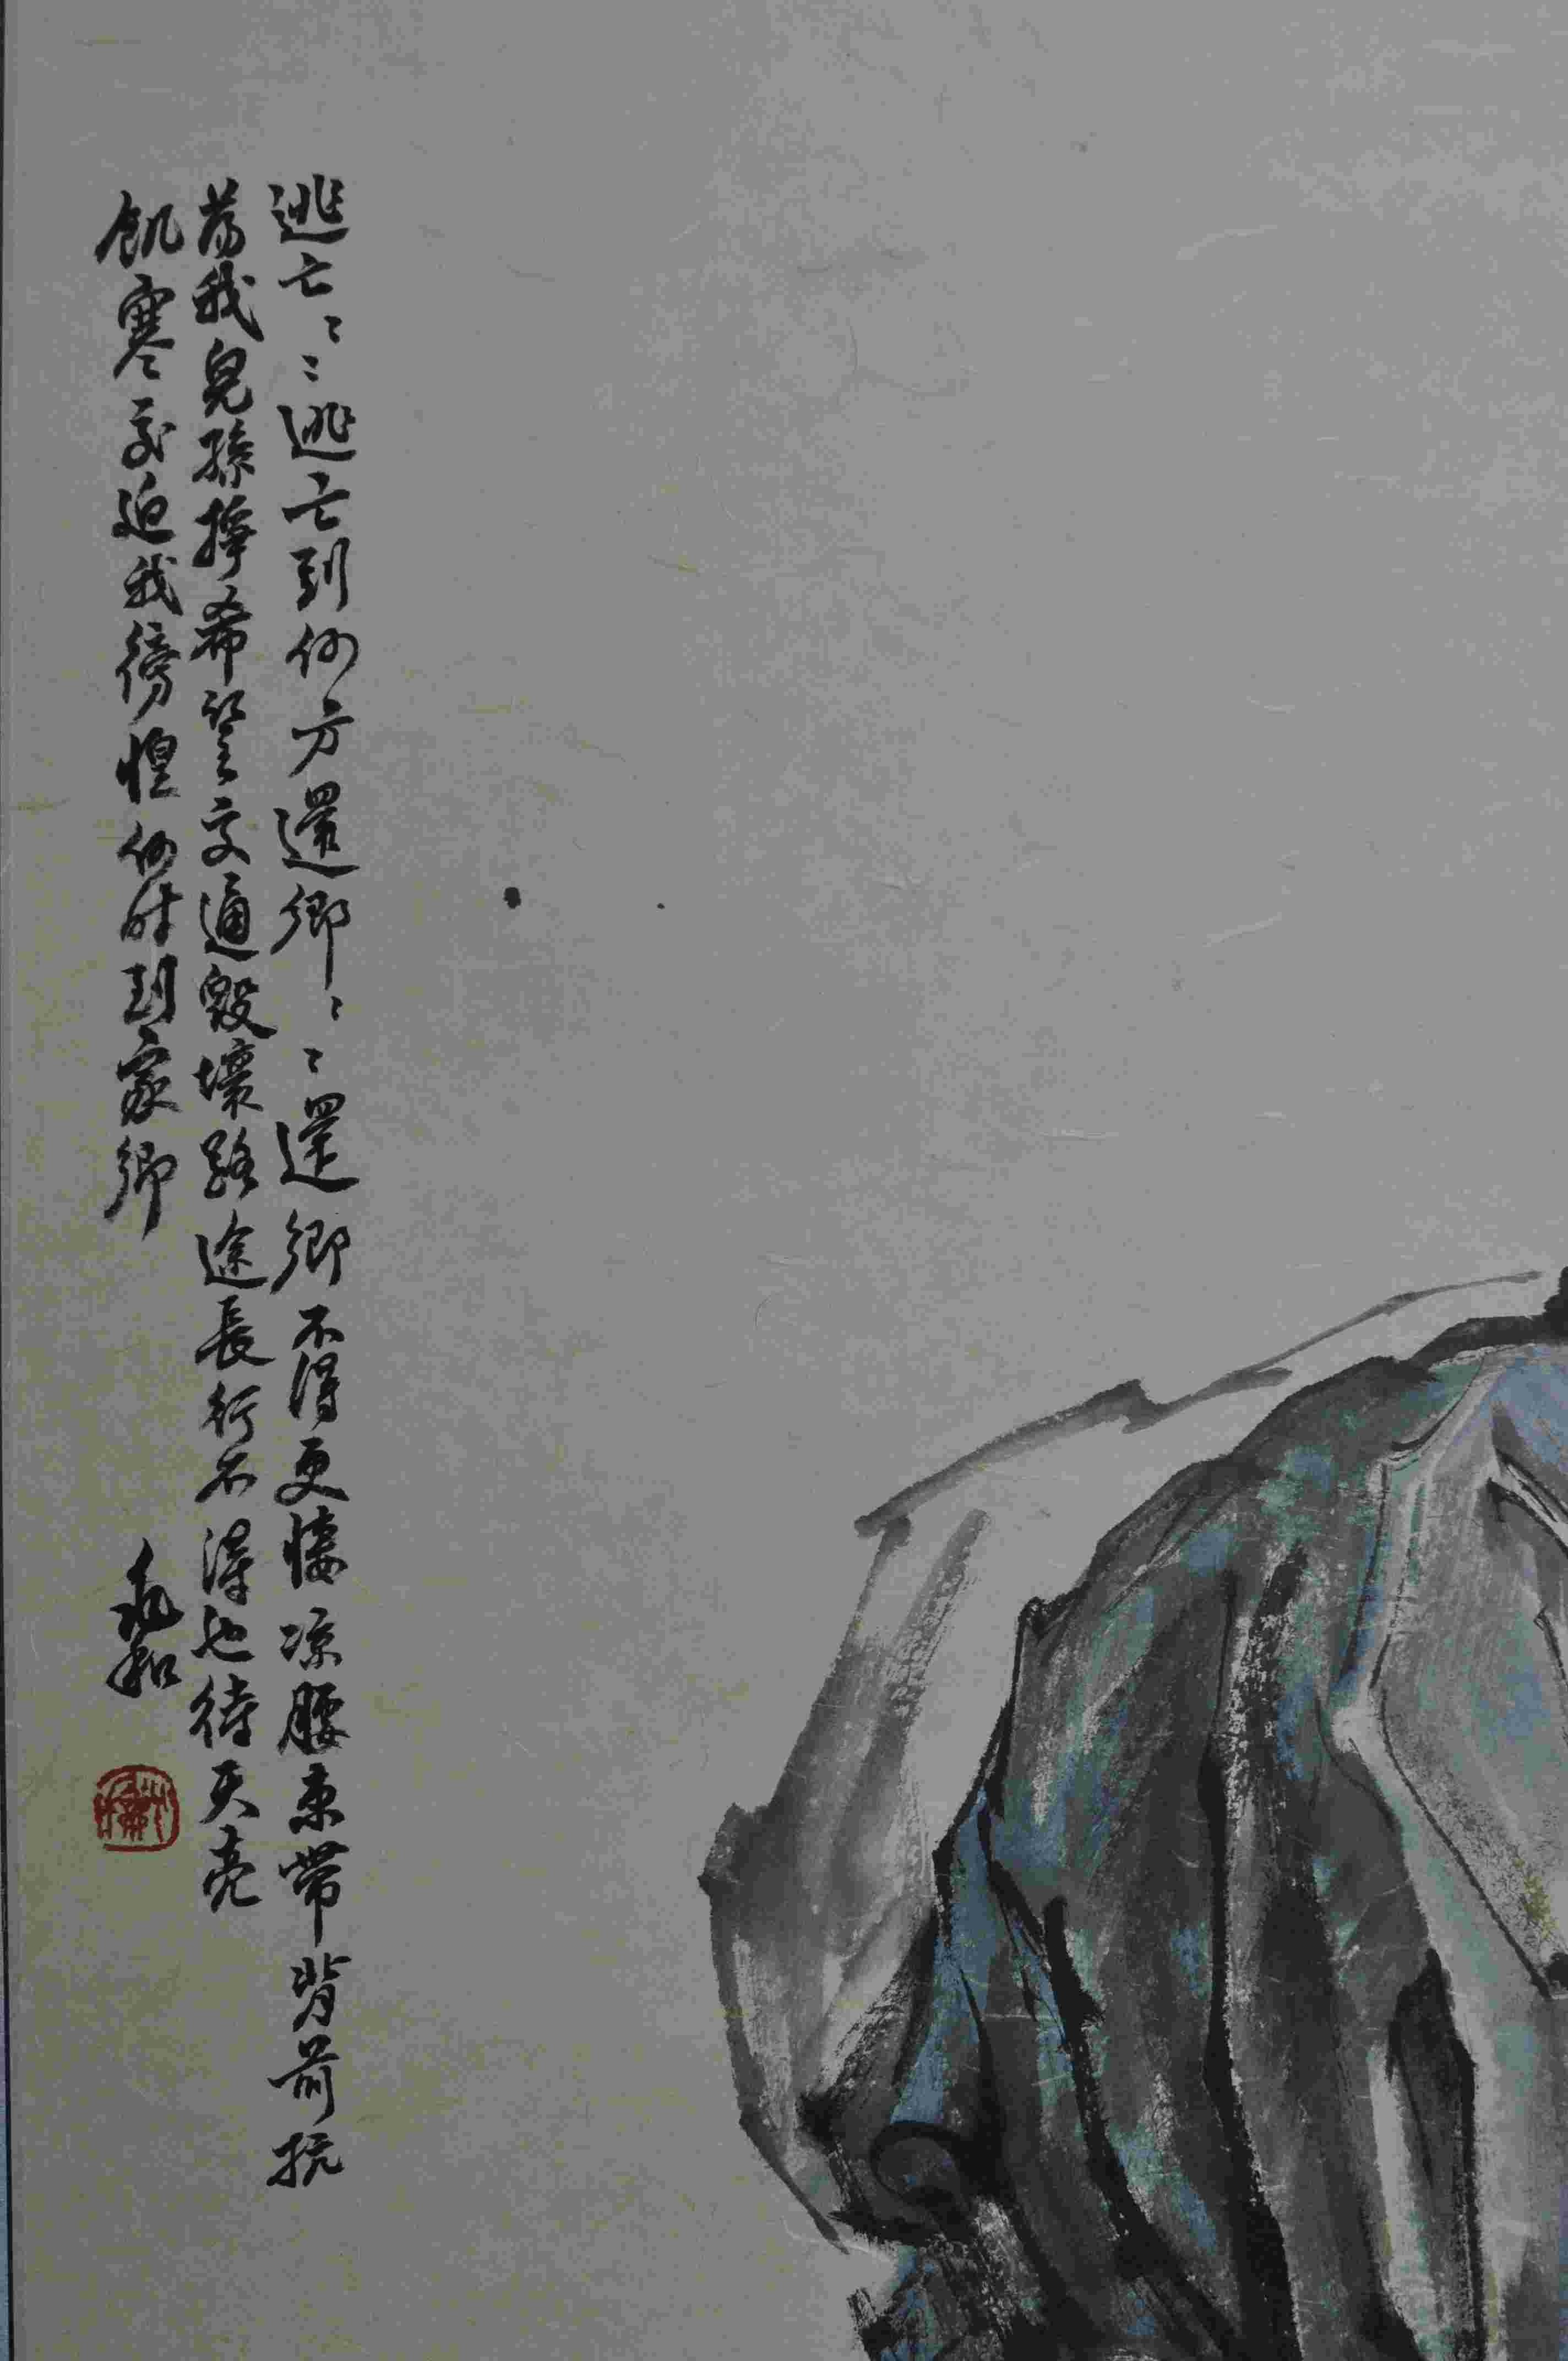 逃亡〻〻逃亡到何方還鄉〻〻還鄉不得更悽凉腰束帶背前抗
為我兒孫掙希望交通毀壞路途長行不得也待天亮
飢寒交迫我徬惶何时到家鄉
兆和